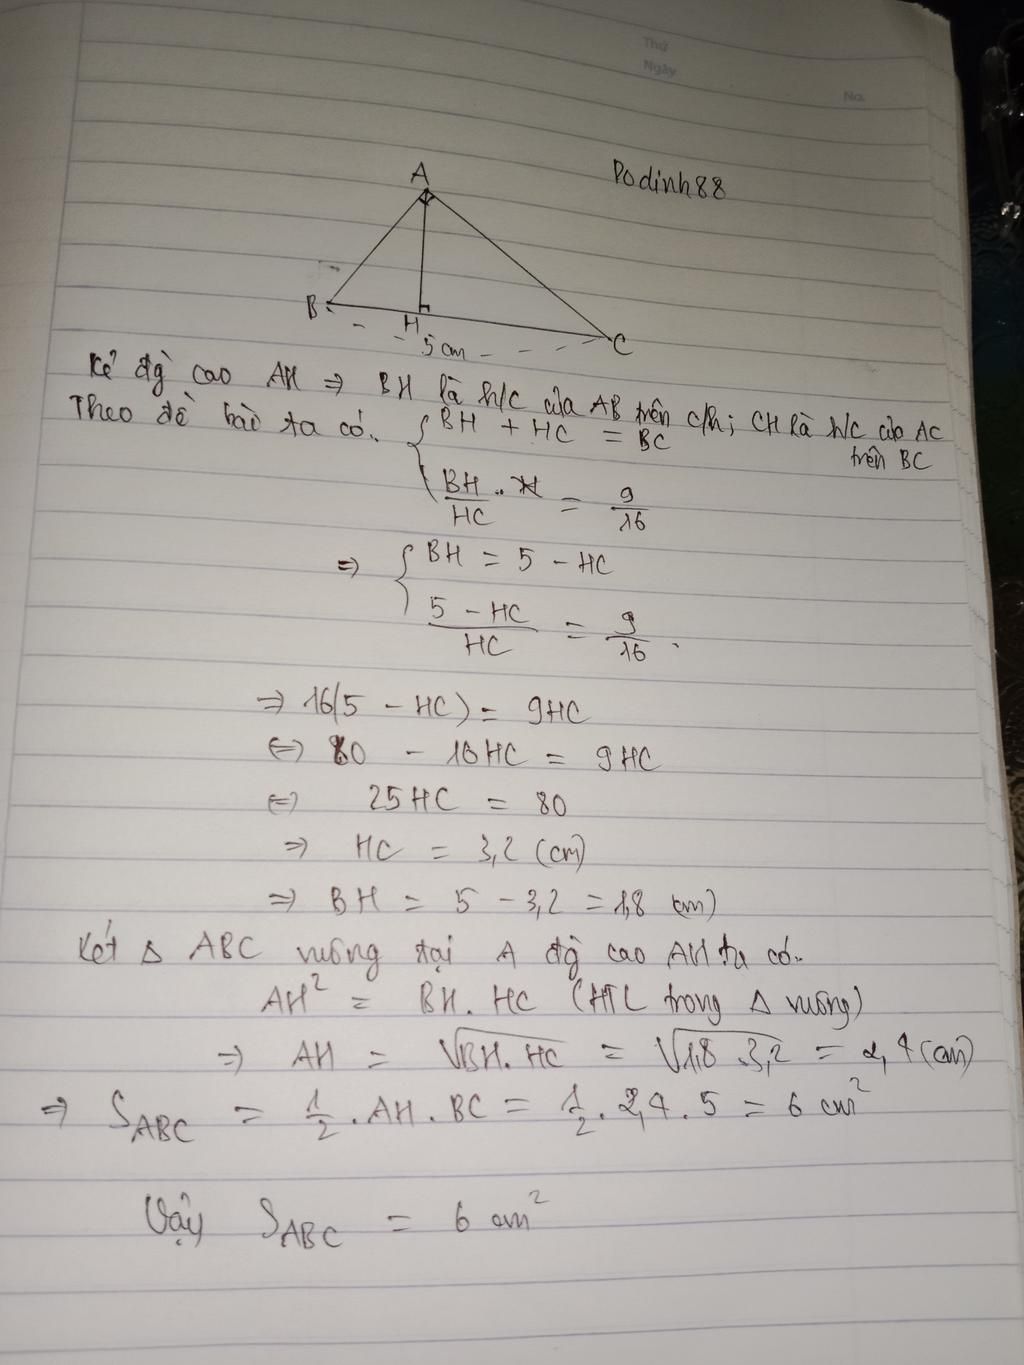 Thứ
Ngày
No.
Podinh88
A
B
H
C
5 cm
Kẻ đg cao AH => BH là h/c của AB trên c/h; CH là h/c của AC trên BC
Theo đề bài ta có: { BH + HC = BC
BH/HC = 9/16
=> { BH = 5 - HC
(5 - HC)/HC = 9/16
=> 16(5 - HC) = 9HC
<=> 80 - 16HC = 9HC
<=> 25HC = 80
=> HC = 3,2 (cm)
=> BH = 5 - 3,2 = 1,8 cm)
Xét Δ ABC vuông tại A đg cao AH ta có:
AH² = BH . HC (HTL trong Δ vuông)
=> AH = √BH.HC = √1,8.3,2 = 2,4 (cm)
=> S_ABC = 1/2 . AH . BC = 1/2 . 2,4 . 5 = 6 cm²
Vậy S_ABC = 6 cm²